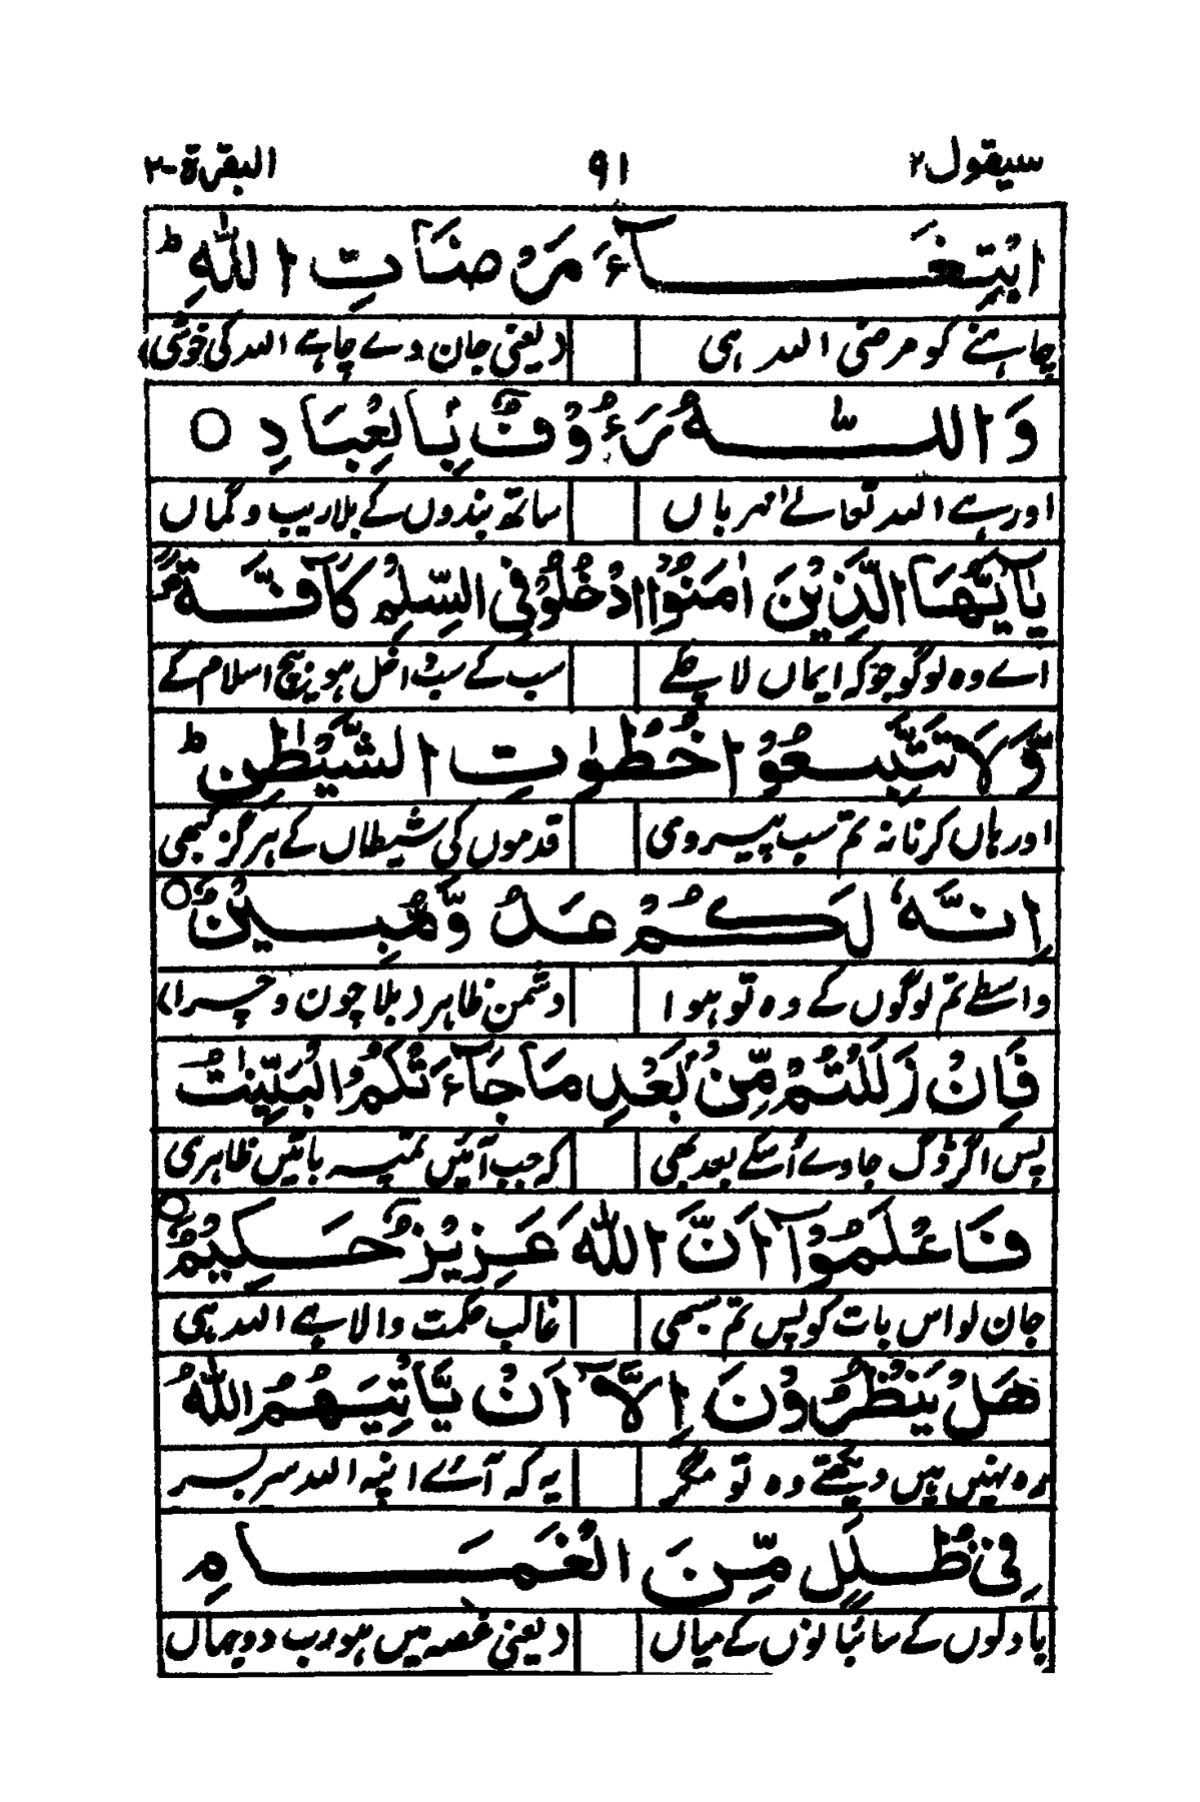 سیقول ۲ ۹۱ البقرۃ-۲
ابْتِغَآءَ مَرْضَاتِ اللّٰهِ ؕ
چاہنے کو مرضی اللہ ہی (یعنی جان دے چاہے اللہ کی خوشی)
وَ اللّٰهُ رَءُوْفٌۢ بِالْعِبَادِ ○
اور ہے اللہ تعالےٰ مہرباں ساتھ بندوں کے بلاریب و گماں
يٰۤاَيُّهَا الَّذِيْنَ اٰمَنُوا ادْخُلُوْا فِي السِّلْمِ كَآفَّةً ۪
اے وہ لوگو جو کہ ایماں لا چکے سب کے سب داخل ہو بیچ اسلام کے
وَّ لَا تَتَّبِعُوْا خُطُوٰتِ الشَّيْطٰنِ ؕ
اور ہاں کرنا نہ تم سب پیروی قدموں کی شیطاں کے ہرگز کبھی
اِنَّهٗ لَكُمْ عَدُوٌّ مُّبِيْنٌ ○
واسطے تم لوگوں کے وہ تو ہوا دشمن ظاہر (بلا چون و چرا)
فَاِنْ زَلَلْتُمْ مِّنْۢ بَعْدِ مَا جَآءَتْكُمُ الْبَيِّنٰتُ
پس اگر ڈگ جاوے اُسکے بعد بھی کہ جب آئیں تمپہ باتیں ظاہری
فَاعْلَمُوْۤا اَنَّ اللّٰهَ عَزِيْزٌ حَكِيْمٌ ○
جان لو اس بات کو پس تم سبھی غالب حکمت والا ہے اللہ ہی
هَلْ يَنْظُرُوْنَ اِلَّاۤ اَنْ يَّاْتِيَهُمُ اللّٰهُ
وہ نہیں ہیں دیکھتے وہ تو مگر یہ کہ آئے انپہ اللہ سربسر
فِيْ ظُلَلٍ مِّنَ الْغَمَامِ
بادلوں کے سائبانوں کے میاں (یعنی غصہ میں ہو رب دو جہاں